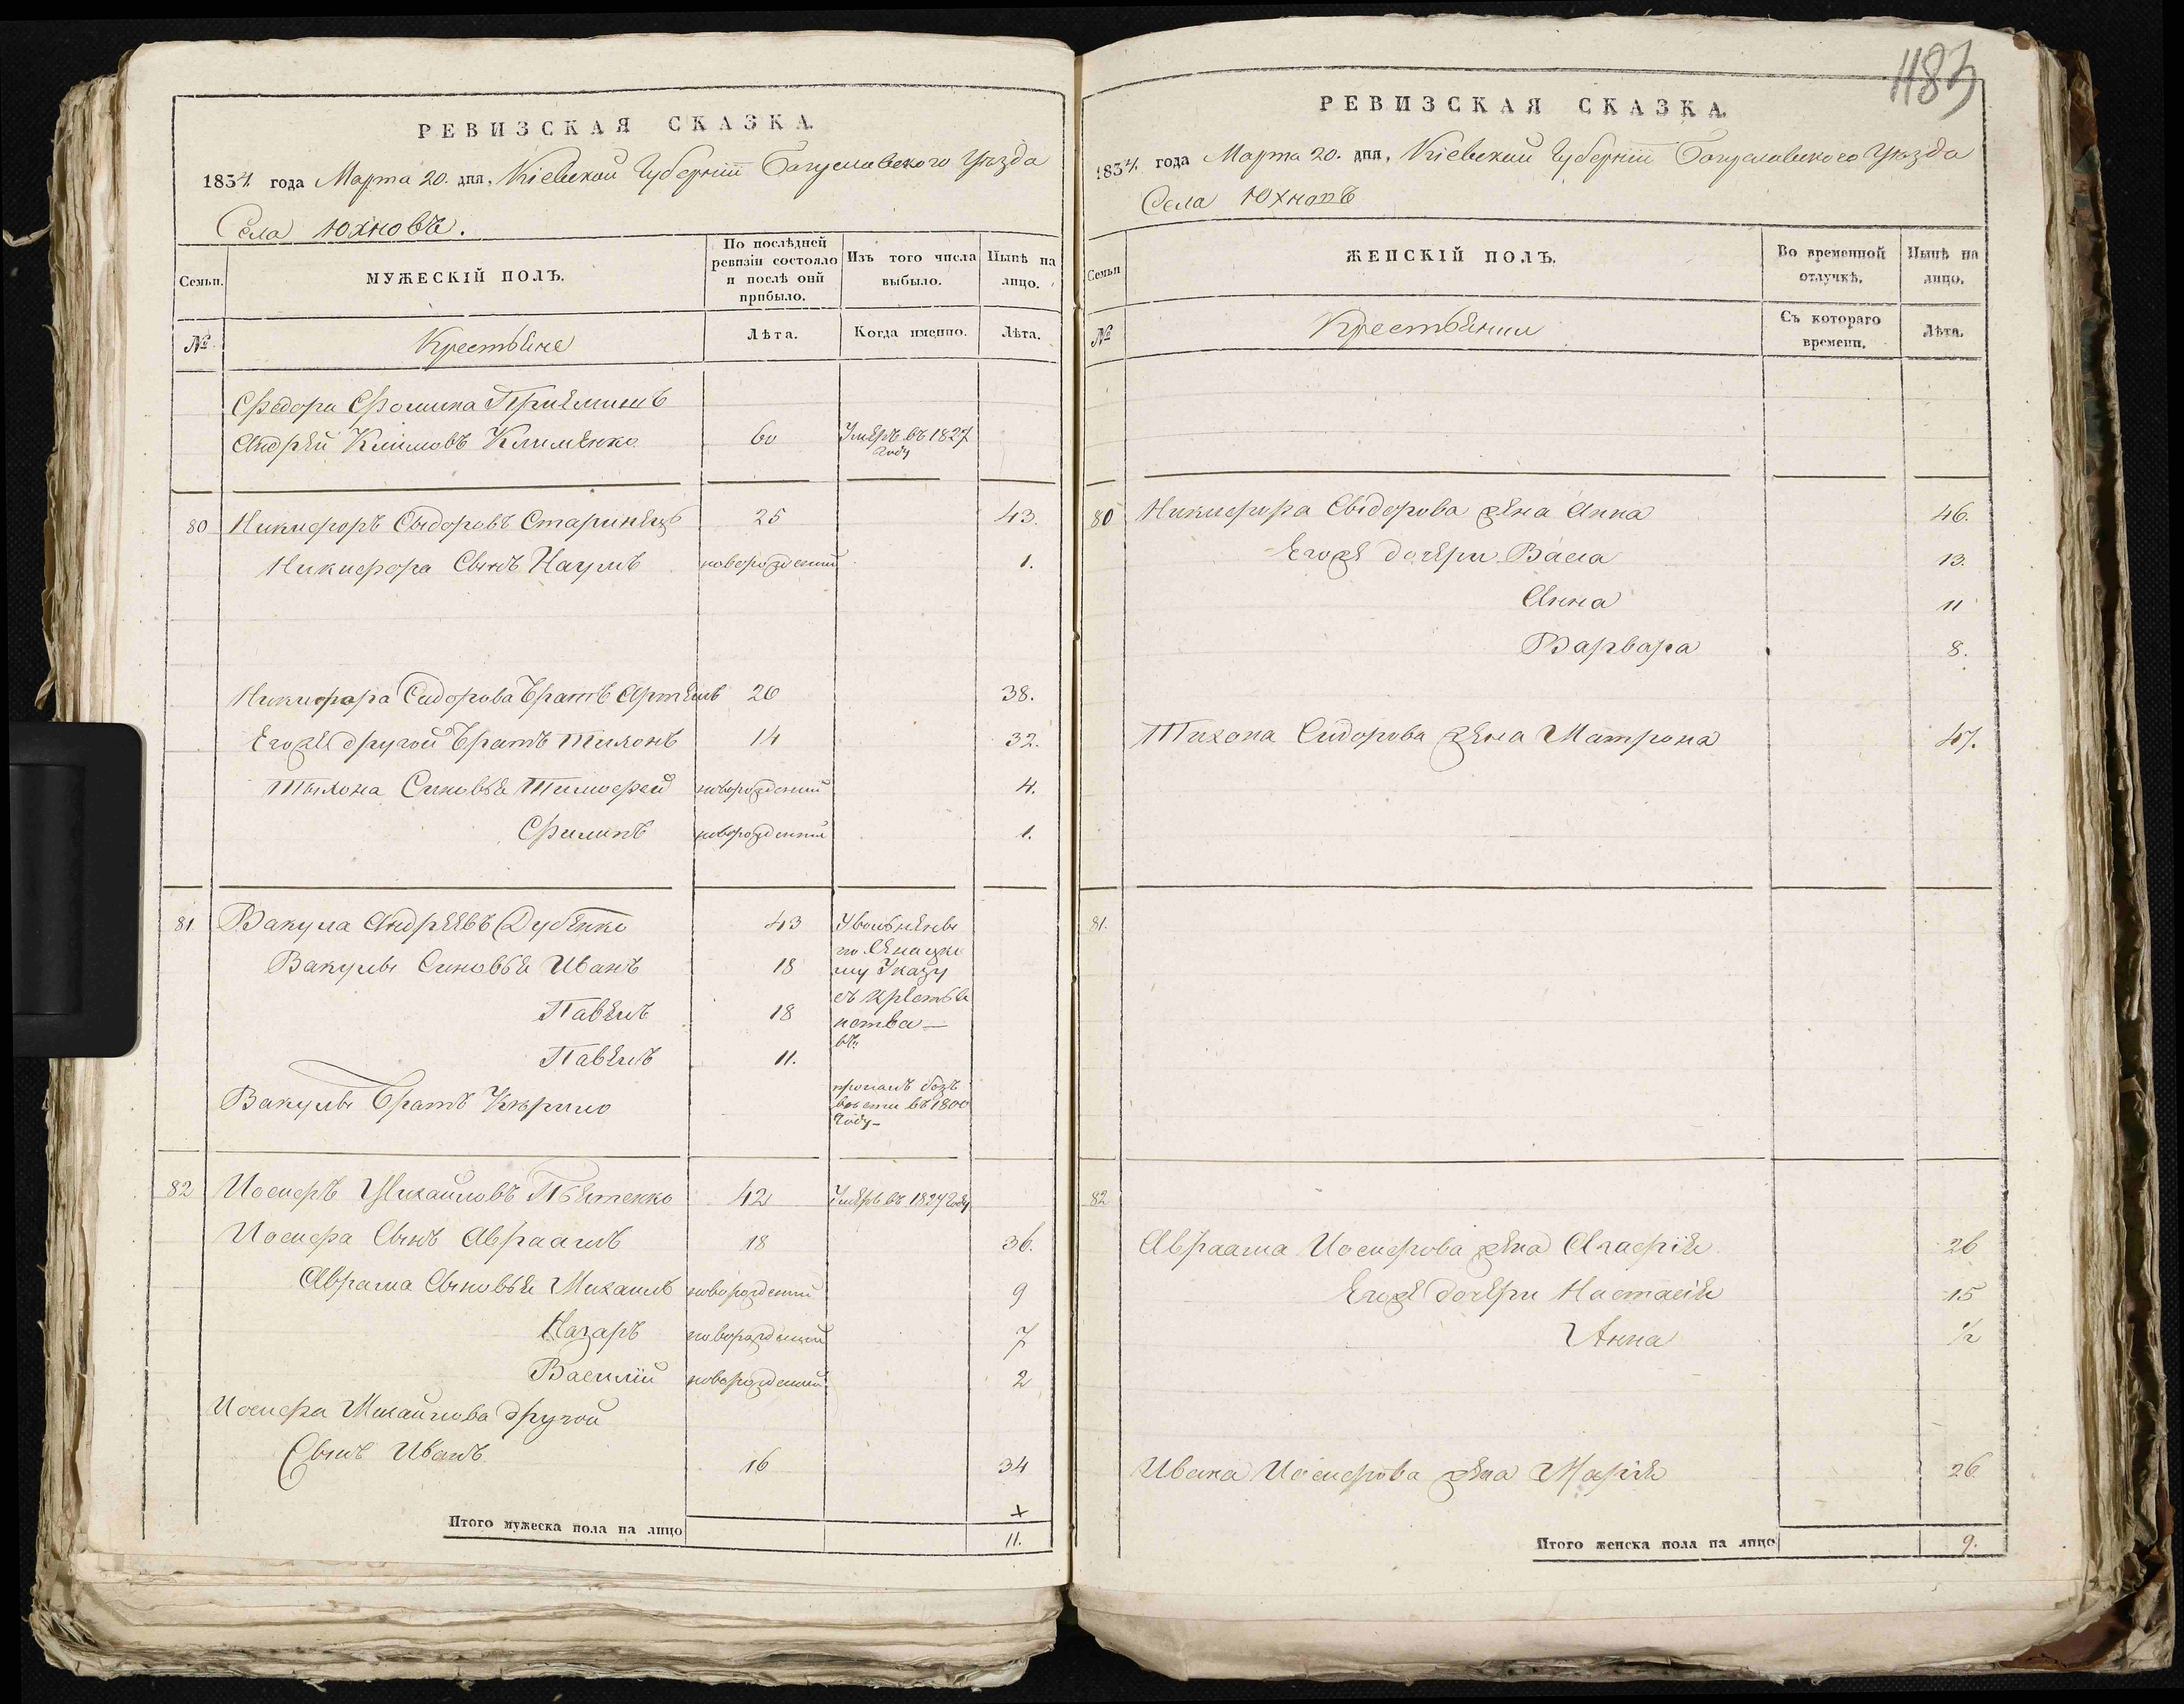 1183
РЕВИЗСКАЯ СКАЗКА.
1834 года Марта 20. дня, Кіевской Губерніи Богуславского Уѣзда
Села Юхновъ.
Семьи.
МУЖЕСКІЙ ПОЛЪ.
По послѣдней ревизіи состояло и послѣ оній прибыло.
Изъ того числа выбыло.
Нынѣ на лицо.
№
Крестьяне
Лѣта.
Когда именно.
Лѣта.
Федора Фомина Приемишъ
Андрей Климовъ Клименко 60 Умеръ въ 1827 году
80 Никифоръ Сидоровъ Старинецъ 25 43.
Никифора Сынъ Наумъ новорожденый 1.
Никифора Сидорова Братъ Артемъ 26 38.
Егоже другой Братъ Тихонъ 14 32.
Тыхона Синовья Тимофей новорожденый 4.
Филипъ новорожденый 1.
81. Вакула Андреевъ Дубенко 43 Увольнены
по Сенацко
Вакулы Синовья Иванъ 18 му Указу
съ крестья
Павелъ 18 нства—
Павелъ 11.
Вакулы Братъ Кырило пропалъ безъ
вести въ 1800
году—
82 Иосифъ Михайловъ Пьятенко 42 Умеръ въ 1824 году
Иосифа Сынъ Авраамъ 18 36.
Аврама Сыновья Михаилъ новорожденый 9
Назаръ новорожденый 7
Василій новорожденый 2
Иосифа Михайлова другой
Сынъ Иванъ 16 34
Итого мужеска пола на лицо 11.
РЕВИЗСКАЯ СКАЗКА.
1834 года Марта 20. дня, Кіевской Губерніи Богуславского Уѣзда
Села Юхновъ
Семьи
ЖЕНСКІЙ ПОЛЪ.
Во временной отлучкѣ.
Нынѣ на лицо.
№
Крестьянки
Съ котораго времени.
Лѣта.
80 Никифора Сыдорова жена Анна 46.
Егоже дочери Васса 13.
Анна 11
Варвара 8.
Тихона Сидорова жена Матрона 47.
81.
82
Авраама Иосифова жена Агафія 26
Егоже дочери Настасія 15
Анна 1/2
Ивана Иосифова жена Марія 26
Итого женска пола на лицо 9.